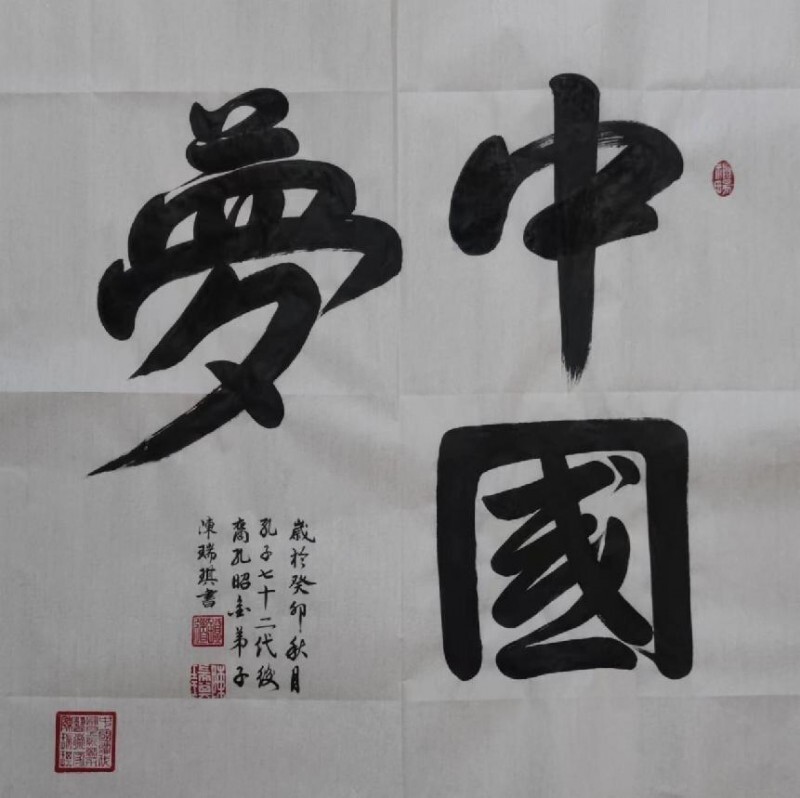 中國
夢
歲於癸卯秋月
孔子七十二代後
裔孔昭金弟子
陳瑞琪書